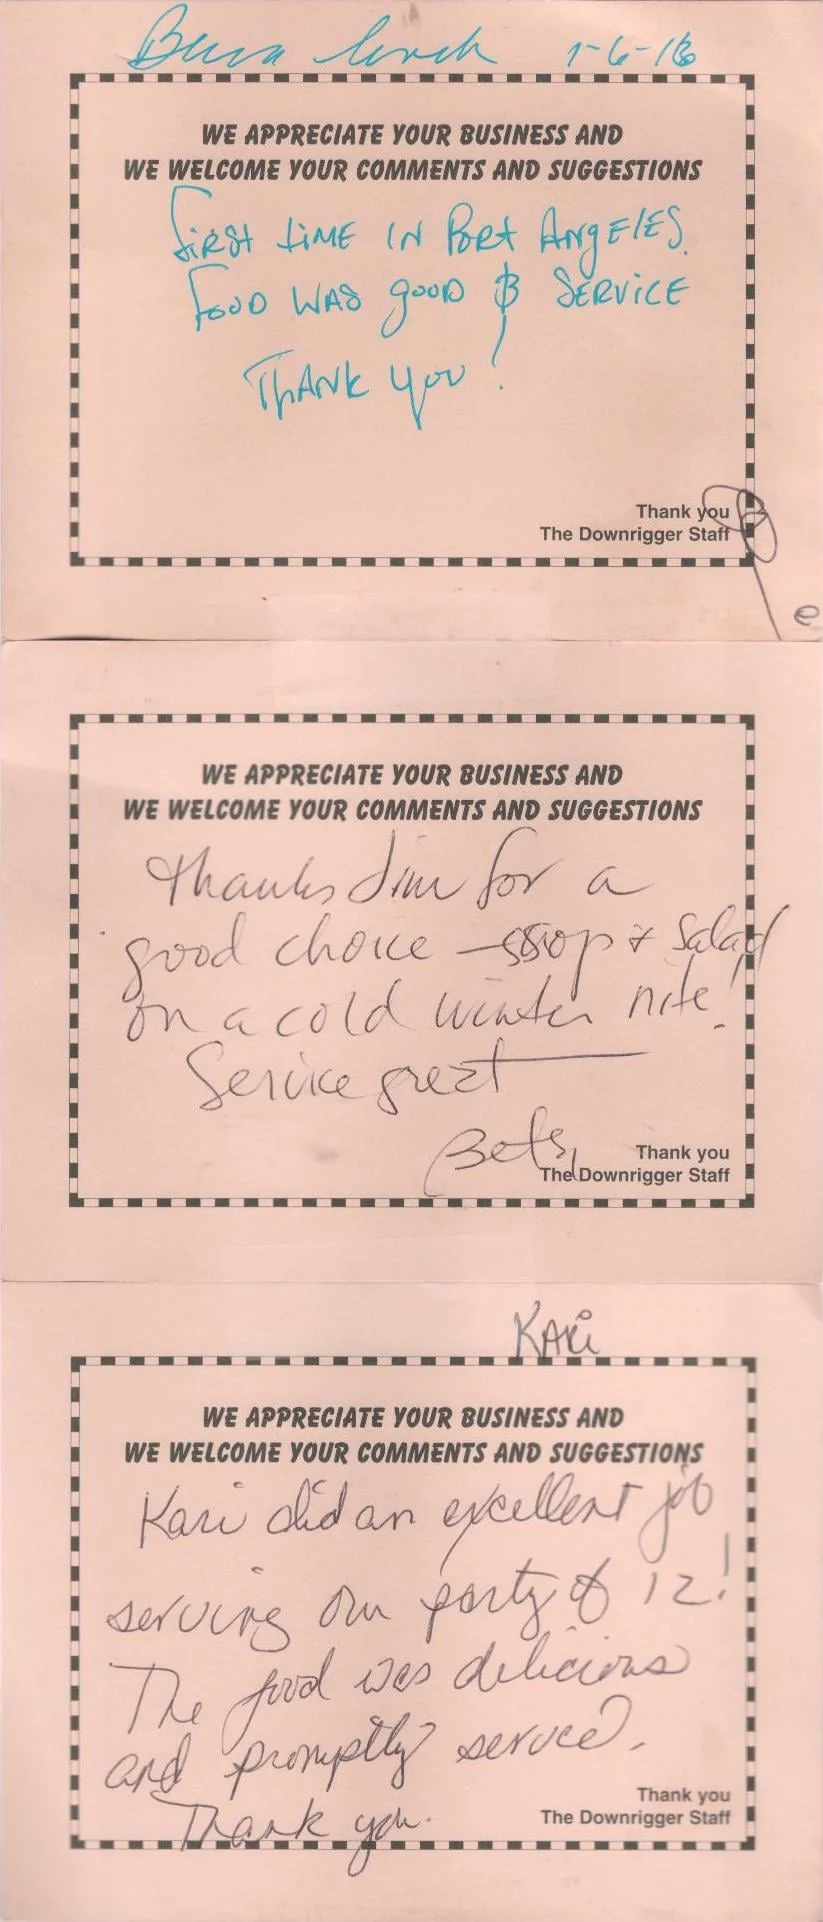 lunch 1-6-16
WE APPRECIATE YOUR BUSINESS AND
WE WELCOME YOUR COMMENTS AND SUGGESTIONS
First time in Port Angeles.
Food was good & Service
Thank you!
Thank you
The Downrigger Staff
e
WE APPRECIATE YOUR BUSINESS AND
WE WELCOME YOUR COMMENTS AND SUGGESTIONS
Thanks Jim for a
good choice — soop & salad
on a cold winter nite!
Service great
Betsy
Thank you
The Downrigger Staff
Kari
WE APPRECIATE YOUR BUSINESS AND
WE WELCOME YOUR COMMENTS AND SUGGESTIONS
Kari did an excellent job
serving our party of 12!
The food was delicious
and promptly served.
Thank you.
Thank you
The Downrigger Staff